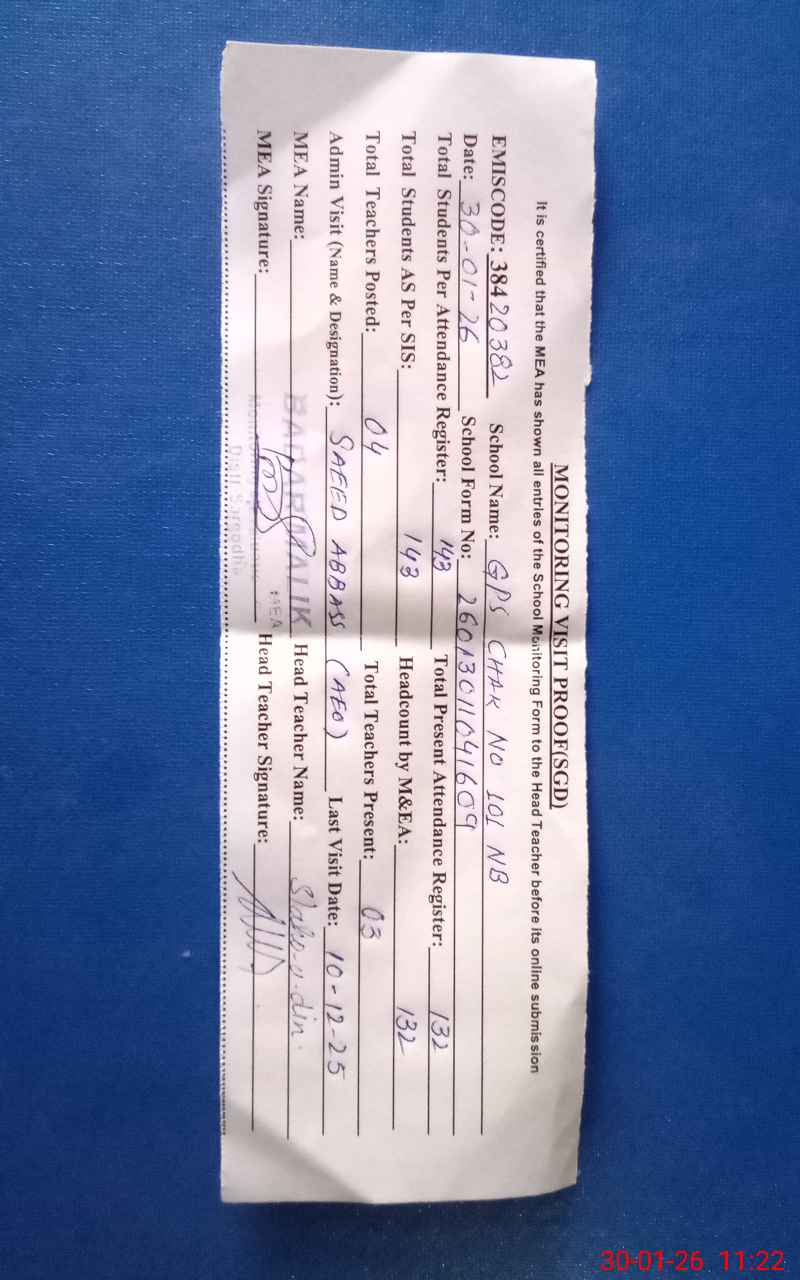 MONITORING VISIT PROOF(SGD)
It is certified that the MEA has shown all entries of the School Monitoring Form to the Head Teacher before its online submission
EMISCODE: 38420382 School Name: GPS CHAK NO 101 NB
Date: 30-01-26 School Form No: 2601301041609
Total Students Per Attendance Register: 143 Total Present Attendance Register: 132
Total Students AS Per SIS: 143 Headcount by M&EA: 132
Total Teachers Posted: 04 Total Teachers Present: 03
Admin Visit (Name & Designation): SAEED ABBASS (AEO) Last Visit Date: 10-12-25
MEA Name: MALIK Head Teacher Name:
MEA Signature: MEA Head Teacher Signature:
Distt Sargodha
30-01-26 11:22